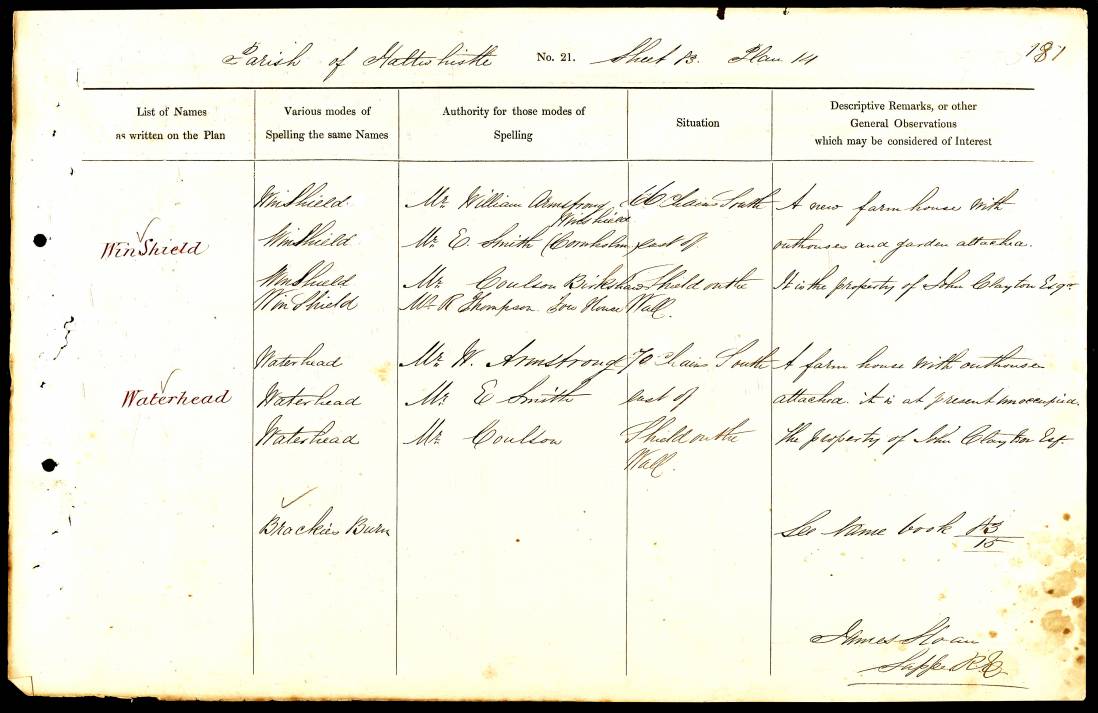 Parish of Haltwhistle No. 21. Sheet 83. Plan 14 181
List of Names
as written on the Plan
Various modes of
Spelling the same Names
Authority for those modes of
Spelling
Situation
Descriptive Remarks, or other
General Observations
which may be considered of Interest
WinShield
WinShield
WinShield
WinShield
WinShield
Mr. William Armstrong
WinShield
Mr. E. Smith Cornholm
Mr. Coulson Birkshaw
Mr. R. Thompson Tow House
66 Chains South
east of
Shield on the
Wall.
A new farm house with
outhouses and garden attached.
It is the property of John Clayton Esqr.
Waterhead
Waterhead
Waterhead
Waterhead
Mr. W. Armstrong
Mr. E Smith
Mr. Coulson
70 Chains South
east of
Shield on the
Wall.
A farm house with outhouses
attached. it is at present unoccupied.
The property of John Clayton Esqr.
Brackies Burn
See Name book 83
15
James Sloan
Sapper R.E.